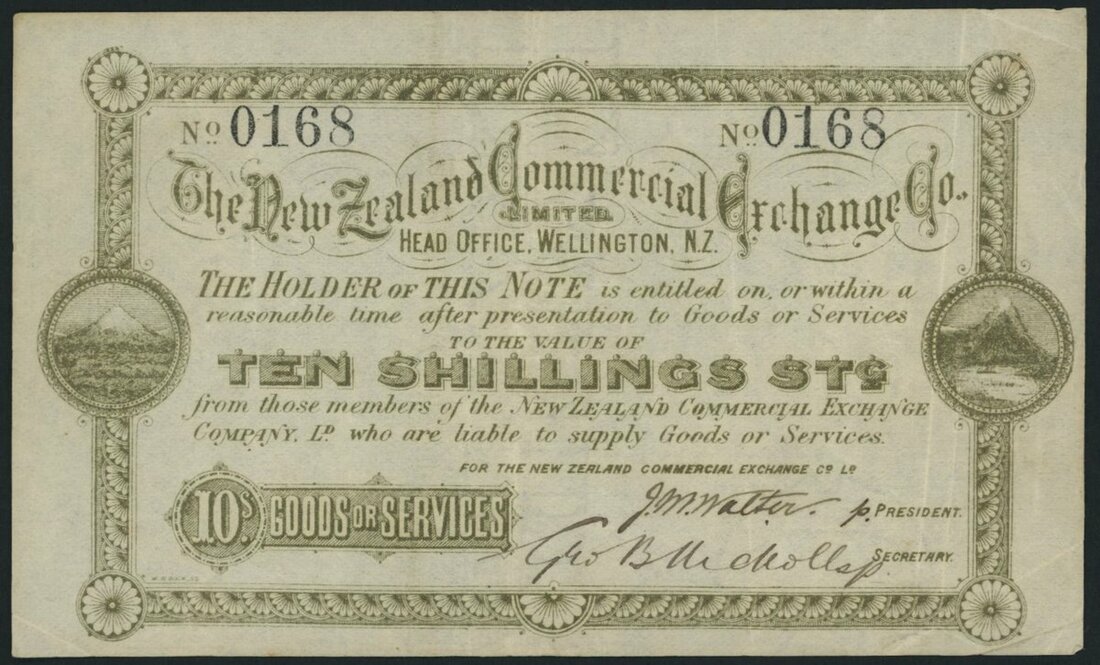 No. 0168 No. 0168
The New Zealand Commercial Exchange Co.
LIMITED.
HEAD OFFICE, WELLINGTON, N.Z.
THE HOLDER OF THIS NOTE is entitled on, or within a
reasonable time after presentation to Goods or Services
TO THE VALUE OF
TEN SHILLINGS STG
from those members of the NEW ZEALAND COMMERCIAL EXCHANGE
COMPANY, LD who are liable to supply Goods or Services.
FOR THE NEW ZEALAND COMMERCIAL EXCHANGE CO LD
10S GOODS OR SERVICES
J.W. Walter. p. PRESIDENT.
Geo B Nicholls p. SECRETARY.